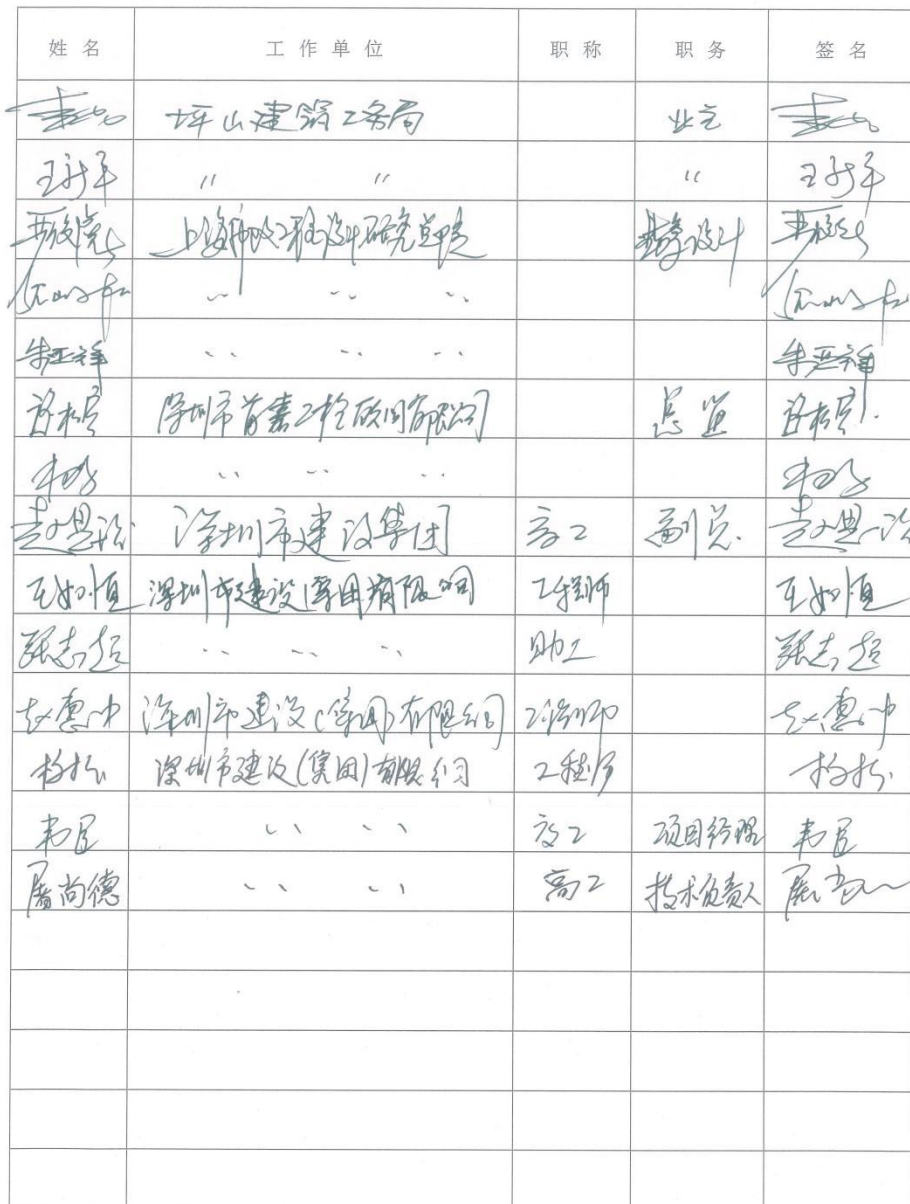 姓名 工作单位 职称 职务 签名
坪山建筑工务局 业主
王新年 〃 〃 〃 王新年
上海市政工程设计研究总院 设计
〃 〃 〃
朱正祥 〃 〃 〃 朱正祥
深圳市首嘉工程顾问有限公司 总监
〃 〃 〃
深圳市建设集团 高工 副总
王如恒 深圳市建设(集团)有限公司 工程师 王如恒
张志超 〃 〃 〃 助工 张志超
赵惠冲 深圳市建设(集团)有限公司 工程师 赵惠冲
深圳市建设(集团)有限公司 工程师
韦臣 〃 〃 高工 项目经理 韦臣
屠尚德 〃 〃 高工 技术负责人